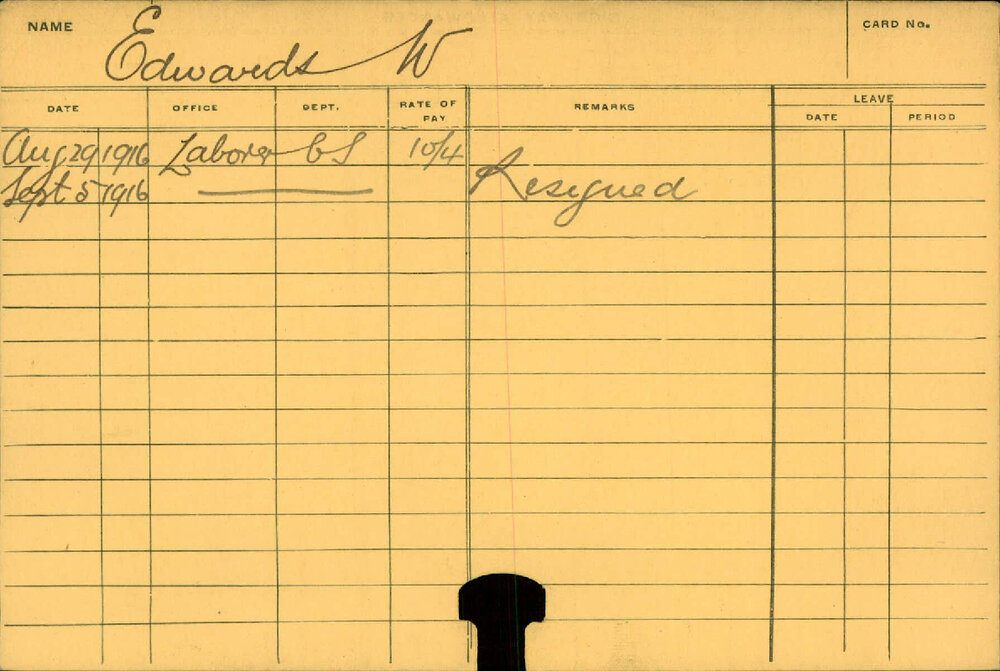 NAME Edwards W CARD No.
DATE OFFICE DEPT. RATE OF PAY REMARKS LEAVE
DATE PERIOD
Aug 29 1916 Laborer GS 10/4
Sept 5 1916 Resigned